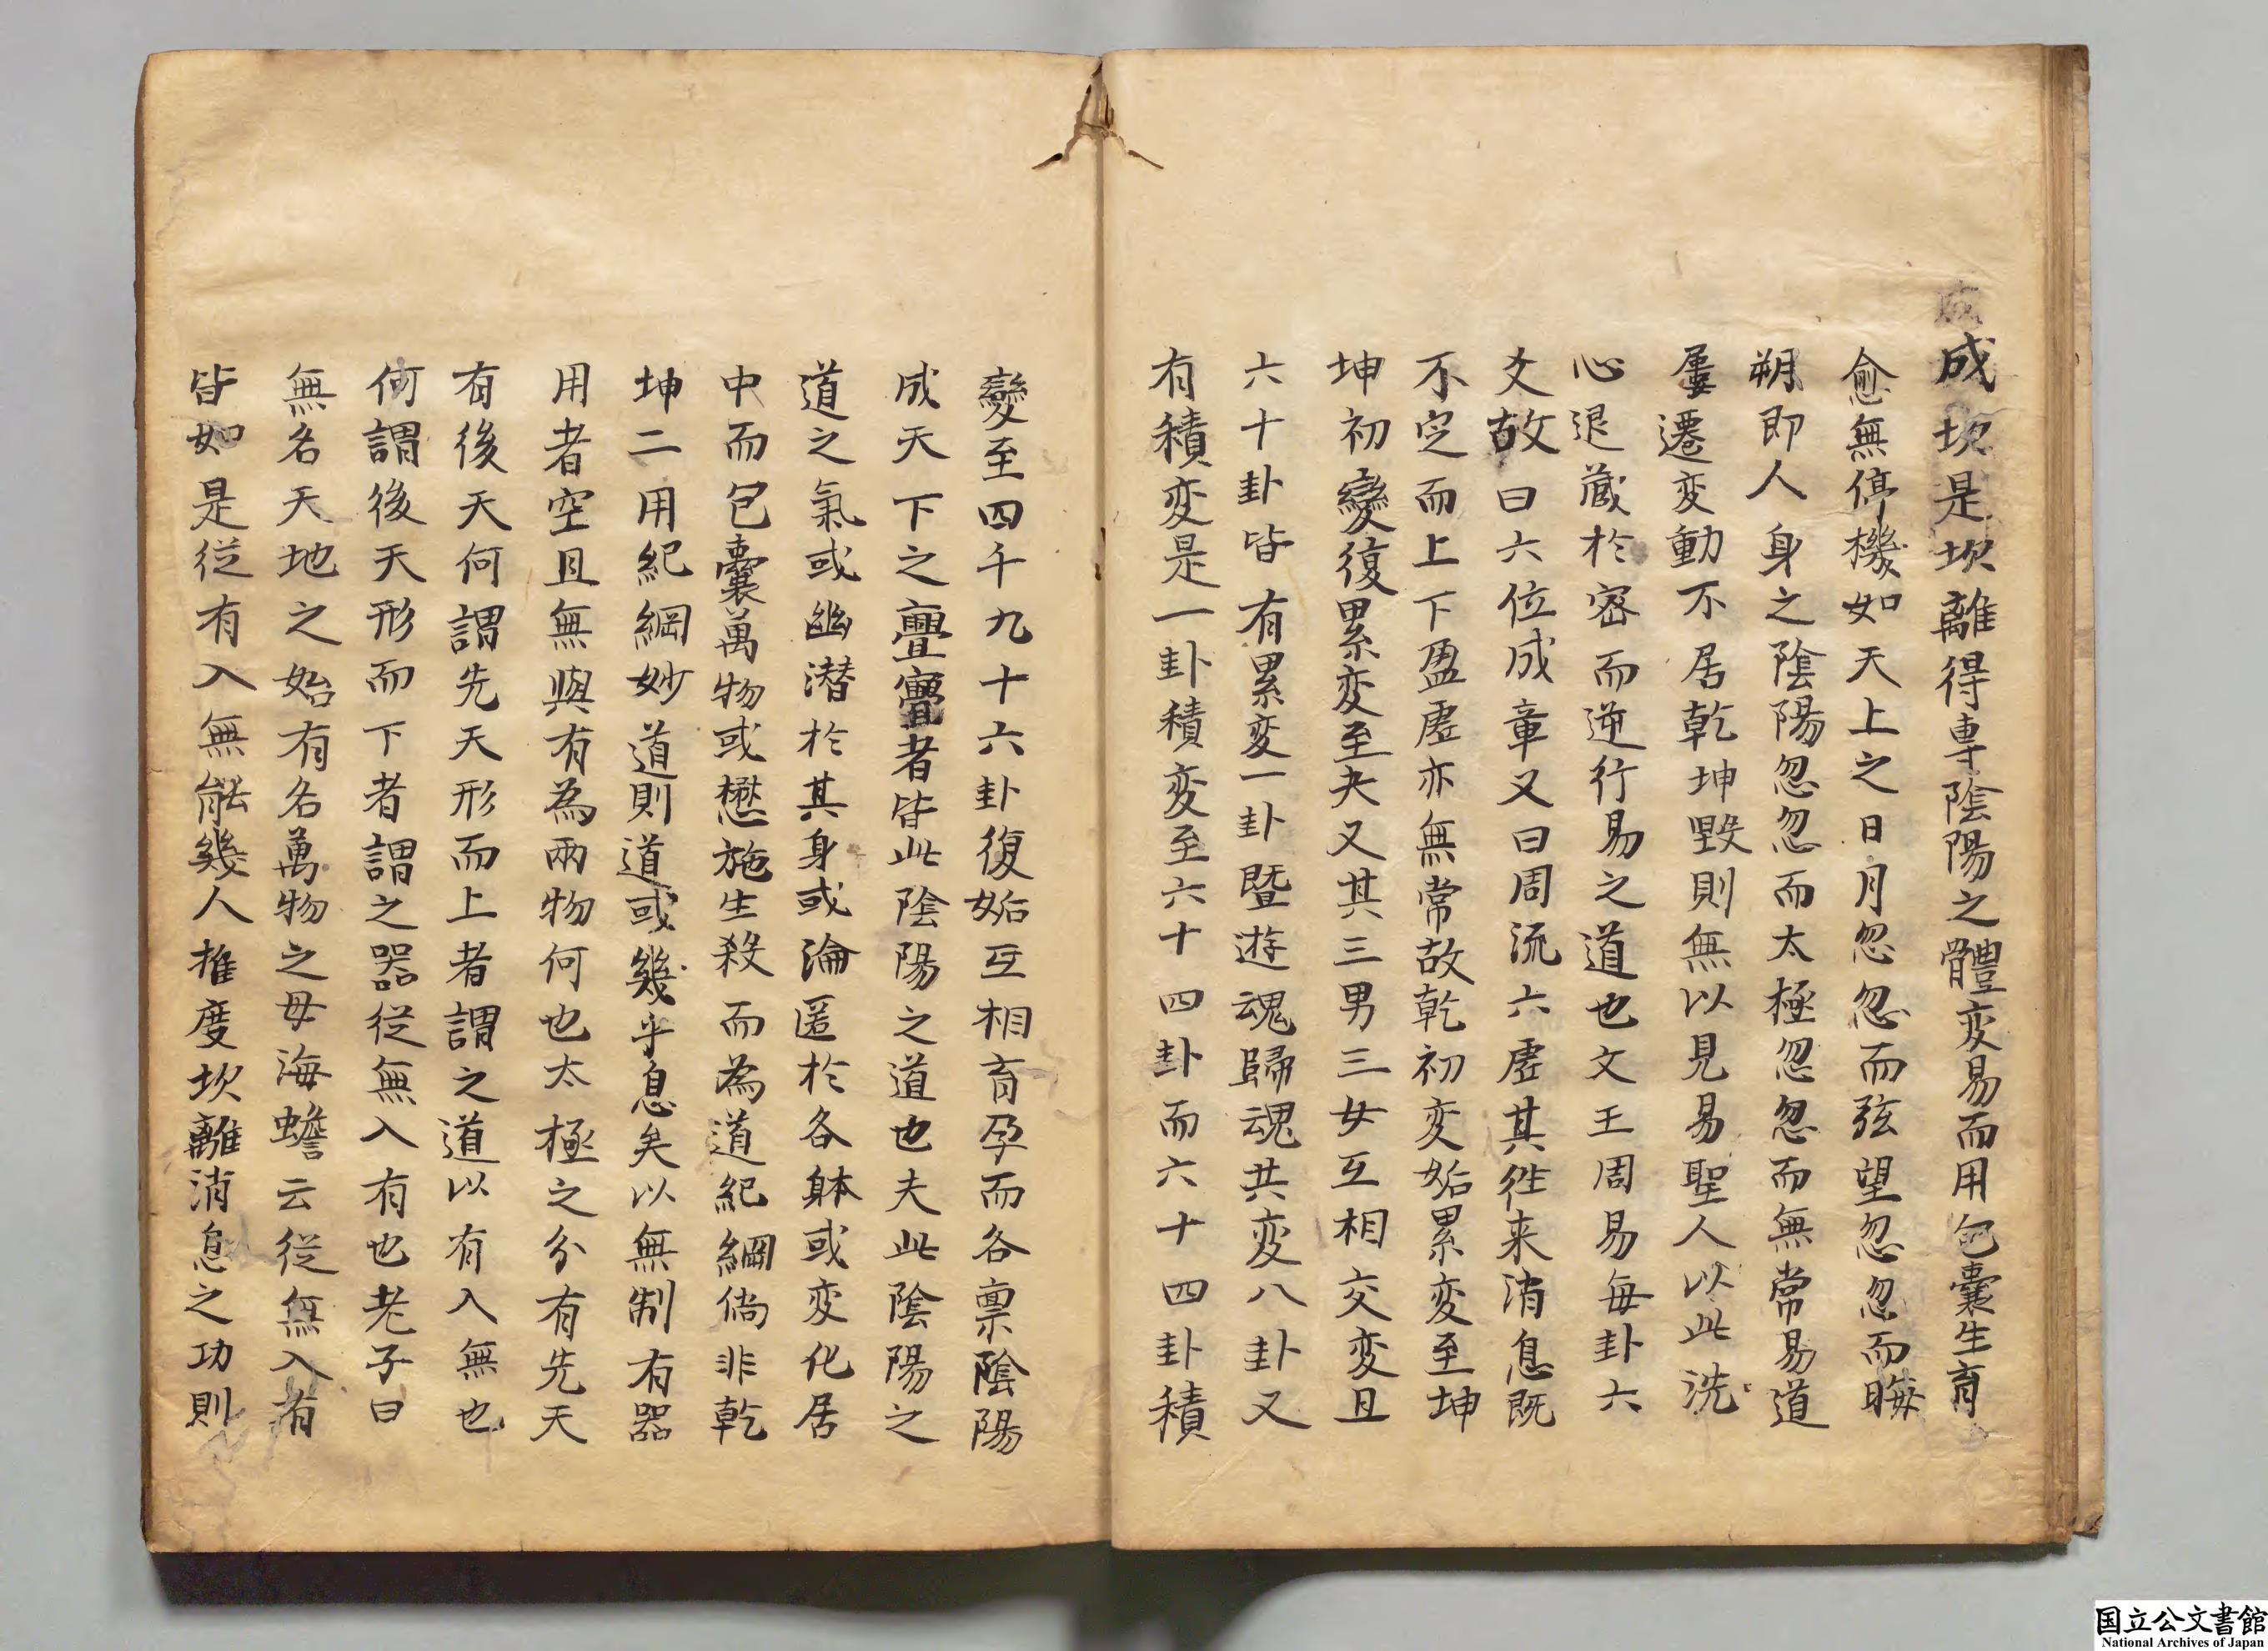 成坎是坎離得専陰陽之體変易而用包囊生育
愈無停機如天上之日月忽忽而弦望忽忽而晦
朔即人身之陰陽忽忽而太極忽忽而無常易道
屢遷変動不居乾坤毀則無以見易聖人以此洗
心退藏於密而逆行易之道也文王周易每卦六
爻故曰六位成章又曰周流六虛其徃来消息既
不定而上下盈虛亦無常故乾初変姤累変至坤
坤初變復累変至夬又其三男三女互相交変且
六十卦皆有累変一卦暨遊魂歸魂共変八卦又
有積変是一卦積変至六十四卦而六十四卦積
變至四千九十六卦復姤互相育孕而各禀陰陽
成天下之亹亹者皆此陰陽之道也夫此陰陽之
道之氣或幽潜於其身或淪匿於各躰或変化居
中而包囊萬物或懋施生殺而為道紀綱倘非乾
坤二用紀綱妙道則道或幾乎息矣以無制有器
用者空且無與有為兩物何也太極之分有先天
有後天何謂先天形而上者謂之道以有入無也
何謂後天形而下者謂之器従無入有也老子曰
無名天地之始有名萬物之母海蟾云従無入有
皆如是従有入無能幾人推度坎離消息之功則
国立公文書館
National Archives of Japan